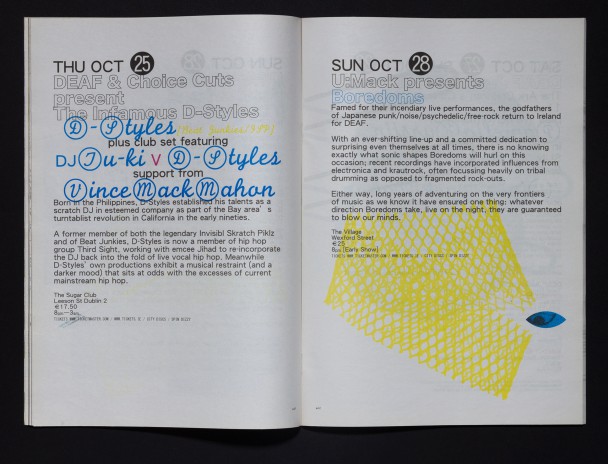 THU OCT 25
DEAF & Choice Cuts
present
The Infamous D-Styles
D-Styles (Beat Junkies/ISP)
plus club set featuring
DJ Tu-ki V D-Styles
support from
Vince Mack Mahon
Born in the Philippines, D-Styles established his talents as a
scratch DJ in esteemed company as part of the Bay area's
turntablist revolution in California in the early nineties.
A former member of both the legendary Invisibl Skratch Piklz
and of Beat Junkies, D-Styles is now a member of hip hop
group Third Sight, working with emcee Jihad to re-incorporate
the DJ back into the fold of live vocal hip hop. Meanwhile
D-Styles' own productions exhibit a musical restraint (and a
darker mood) that sits at odds with the excesses of current
mainstream hip hop.
The Sugar Club
Leeson St Dublin 2
€17.50
TICKETS WWW.TICKETMASTER.COM / WWW.TICKETS.IE / CITY DISCS / SPIN DIZZY
SUN OCT 28
U:Mack presents
Boredoms
Famed for their incendiary live performances, the godfathers
of Japanese punk/noise/psychedelic/free-rock return to Ireland
for DEAF.
With an ever-shifting line-up and a committed dedication to
surprising even themselves at all times, there is no knowing
exactly what sonic shapes Boredoms will hurl on this
occasion; recent recordings have incorporated influences from
electronica and krautrock, often focussing heavily on tribal
drumming as opposed to fragmented rock-outs.
Either way, long years of adventuring on the very frontiers
of music as we know it have ensured one thing: whatever
direction Boredoms take, live on the night, they are guaranteed
to blow our minds.
The Village
Wexford Street
€25
[Early Show]
TICKETS WWW.TICKETMASTER.COM / WWW.TICKETS.IE / CITY DISCS / SPIN DIZZY